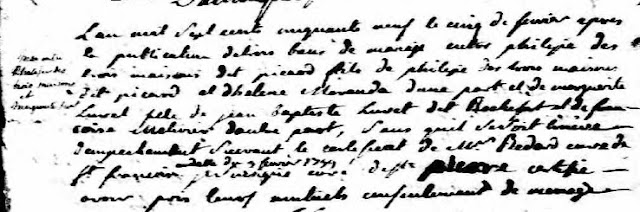 L'an mil sept cents cinquante neuf le cinq de fevrier apres
la publication de trois bans de mariage entre philippe des
trois maisons dit picard fils de philippe des trois maisons
dit picard et d'helene Meranda d'une part et de marguerite
Luret fille de jean Baptiste Luret dit Rochefort et de fran
coise d'autre part, sans quil se soit trouvé
d'empechement suivant le certificat de Mr. Bedard cure de
datté du 3 fevrier 1759
St francois je cure de St pierre certifie
avoir pris leurs mutuels consentement de mariage
mariage
trois maisons
et
marguerite